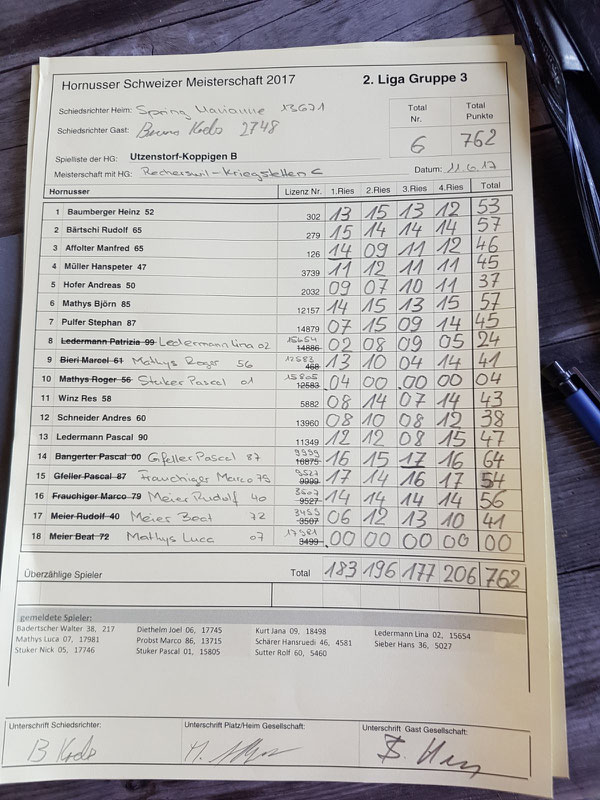 Hornusser Schweizer Meisterschaft 2017 2. Liga Gruppe 3
Schiedsrichter Heim: Spring Marianne 13671
Schiedsrichter Gast: Bruno Krebs 2748
Total Nr. Total Punkte
6 762
Spielliste der HG: Utzenstorf-Koppigen B
Meisterschaft mit HG: Recherswil-Kriegstetten C Datum: 11.6.17
Hornusser Lizenz Nr. 1.Ries 2.Ries 3.Ries 4.Ries Total
1 Baumberger Heinz 52 302 13 15 13 12 53
2 Bärtschi Rudolf 65 279 15 14 14 14 57
3 Affolter Manfred 65 126 14 09 11 12 46
4 Müller Hanspeter 47 3739 11 12 11 11 45
5 Hofer Andreas 50 2032 09 07 10 11 37
6 Mathys Björn 85 12157 14 15 13 15 57
7 Pulfer Stephan 87 14879 07 15 09 14 45
8 Ledermann Patrizia 99 Ledermann Lina 02 15654 14886 02 08 09 05 24
9 Bieri Marcel 61 Mathys Roger 56 12583 468 13 10 04 14 41
10 Mathys Roger 56 Stuker Pascal 01 15805 12583 04 00 00 00 04
11 Winz Res 58 5882 08 14 07 14 43
12 Schneider Andres 60 13960 08 10 08 12 38
13 Ledermann Pascal 90 11349 12 12 08 15 47
14 Bangerter Pascal 00 Gfeller Pascal 87 9999 16875 16 15 17 16 64
15 Gfeller Pascal 87 Frauchiger Marco 79 9527 9999 17 14 16 17 54
16 Frauchiger Marco 79 Meier Rudolf 40 3507 9527 14 14 14 14 56
17 Meier Rudolf 40 Meier Beat 72 3499 3507 06 12 13 10 41
18 Meier Beat 72 Mathys Luca 07 17981 3499 00 00 00 00 00
Überzählige Spieler Total 183 196 177 206 762
gemeldete Spieler:
Badertscher Walter 38, 217 Diethelm Joel 06, 17745 Kurt Jana 09, 18498 Ledermann Lina 02, 15654
Mathys Luca 07, 17981 Probst Marco 86, 13715 Schärer Hansruedi 46, 4581 Sieber Hans 36, 5027
Stuker Nick 05, 17746 Stuker Pascal 01, 15805 Sutter Rolf 60, 5460
Unterschrift Schiedsrichter: Unterschrift Platz/Heim Gesellschaft: Unterschrift Gast Gesellschaft:
B Krebs